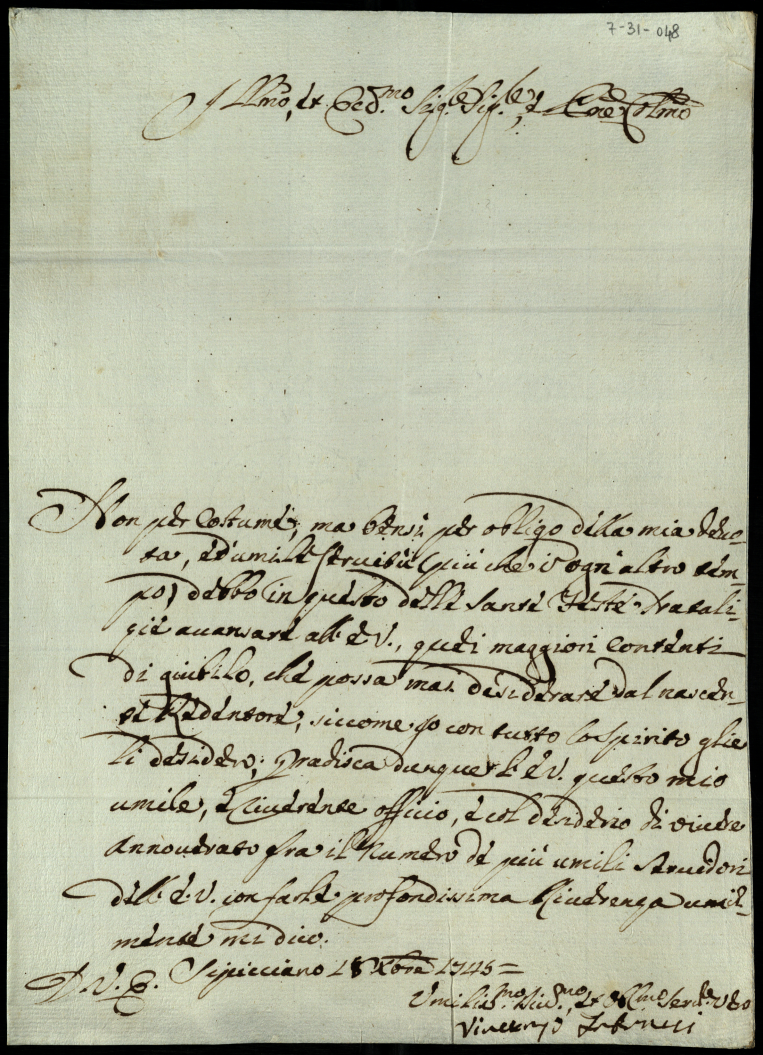 7-31-048
Illmo, et Ecc.mo Sig.e Sig.e, e Pne Colmo
Non per Costume, ma bensì per obligo della mia devo-
ta, ed'umile servitù (più che i ogn'altro tem-
po) debbo in questo delle Sante Feste Natali-
zie avansare all'E.V., quei maggiori Contenti
di giubilo, che possa mai desiderare dal nascen-
te Redentore, siccome io con tutto lo Spirito glie
li desidero; Gradisca dunque l'E.V. questo mio
umile, e riverente officio, e col desiderio di vivere
annoverato fra il Numero de più umili Servidori
dell'E.V. con farle profondissima Riverenza umil-
mente mi dico.
D.V.E. Sipicciano 18 Xbre 1745=
Umiliss.mo Div.mo, et Obl.mo Serv.e Vro
Vincenzo